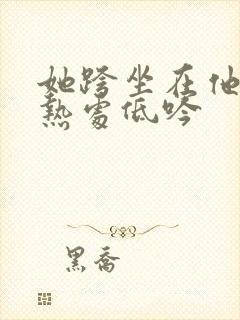 她跨坐在他
熱處低吟
黑喬